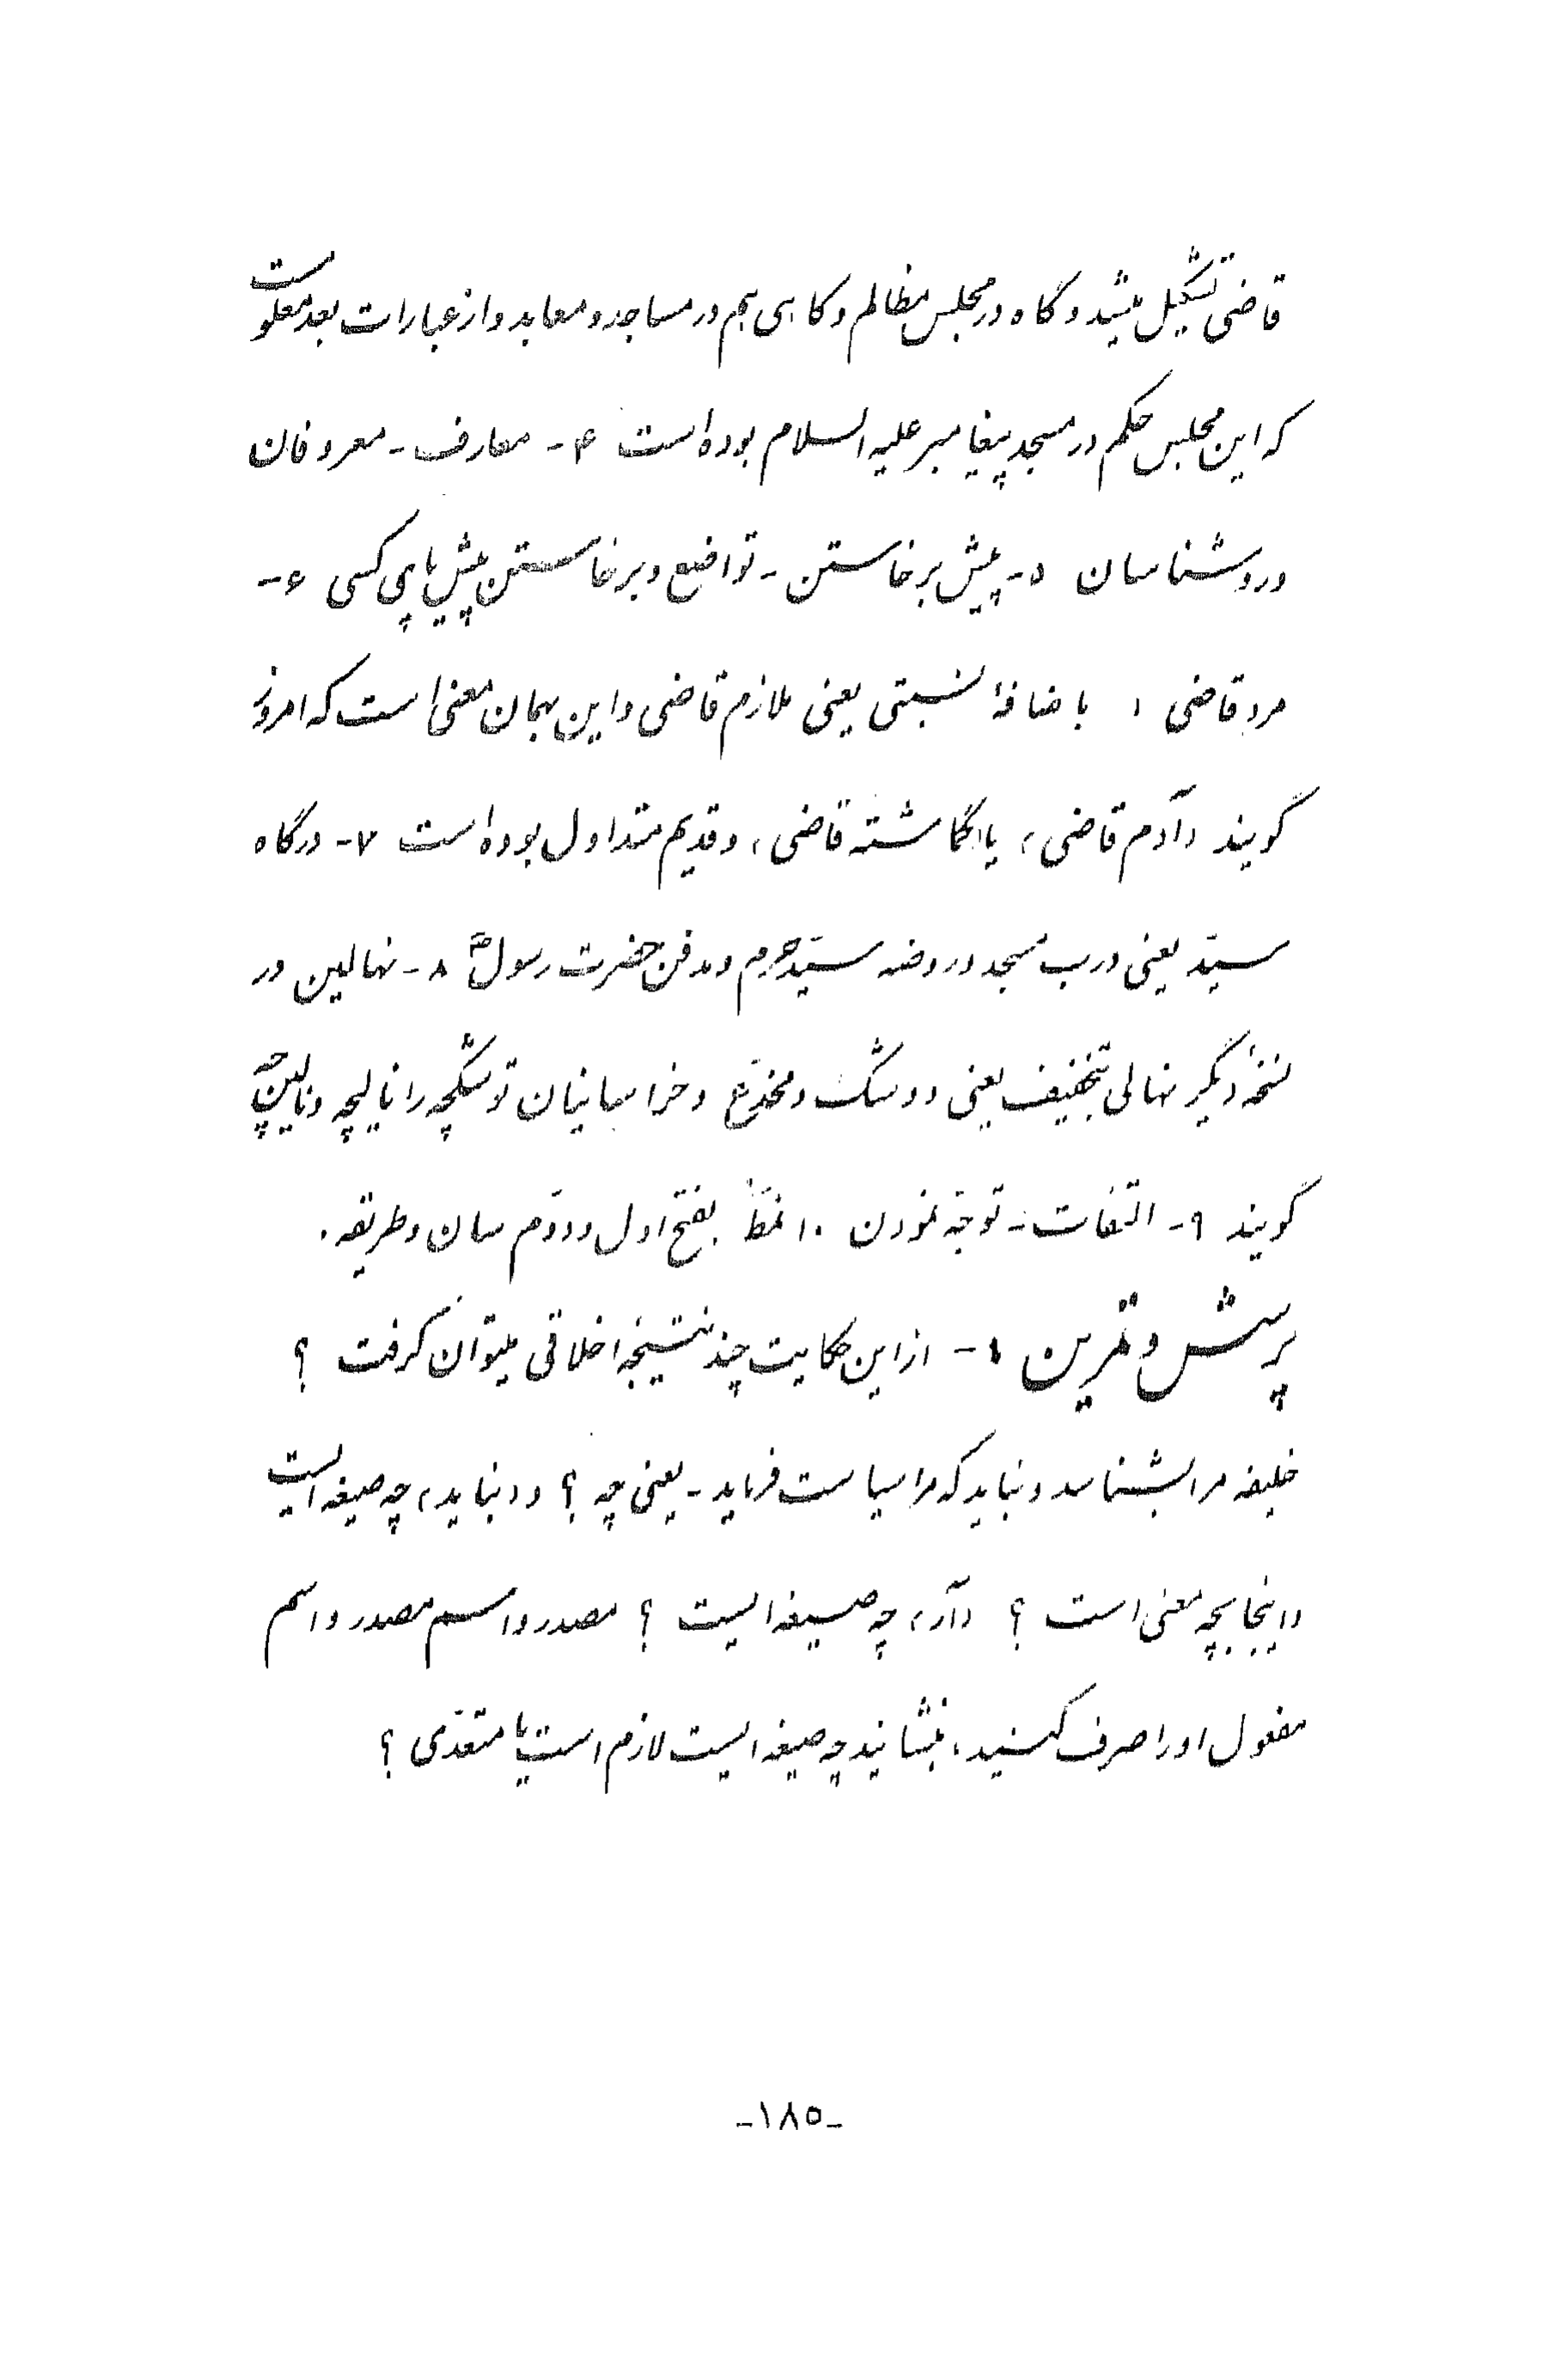 قاضی تشکیل میشد و گاه در مجلس مظالم و گاهی هم در مساجد و معابد و از عبارات بعد معلوست
که این مجلس حکم در مسجد پیغامبر علیه السلام بوده است ۴- معارف - معروفان
و روشناسان ۵- پیش برخاستن - تواضع و برخاستن پیش پای کسی ۶-
مرد قاضی، باضافهٔ نسبتی یعنی ملازم قاضی و این همان معنی است که امروز
گویند «آدم قاضی» یا «گماشته قاضی» و قدیم متداول بوده است ۷- درگاه
سیّد یعنی درب مسجد و روضه سیّد حرم و مدفن حضرت رسول ص ۸- نهالین در
نسخهٔ دیگر نهالی بتخفیف یعنی دوشک و مخدّع و خراسانیان توشکچه را نالیچه و نالین‌چه
گویند ۹- التفات - توجّه نمودن ۱۰ نمَط بفتح اول و دوّم سان و طریقه.
پرسش و تمرین ۱- از این حکایت چند نتیجه اخلاقی میتوان گرفت ؟
خلیفه مرا بشناسد و نباید که مرا سیاست فرماید - یعنی چه ؟ و «نباید» چه صیغه ایست
و اینجا بچه معنی است ؟ «آر» چه صیغه ایست ؟ مصدر و اسم مصدر و اسم
مفعول او را صرف کنید، بنشانید چه صیغه ایست لازم است یا متعدّی ؟
-۱۸۵-